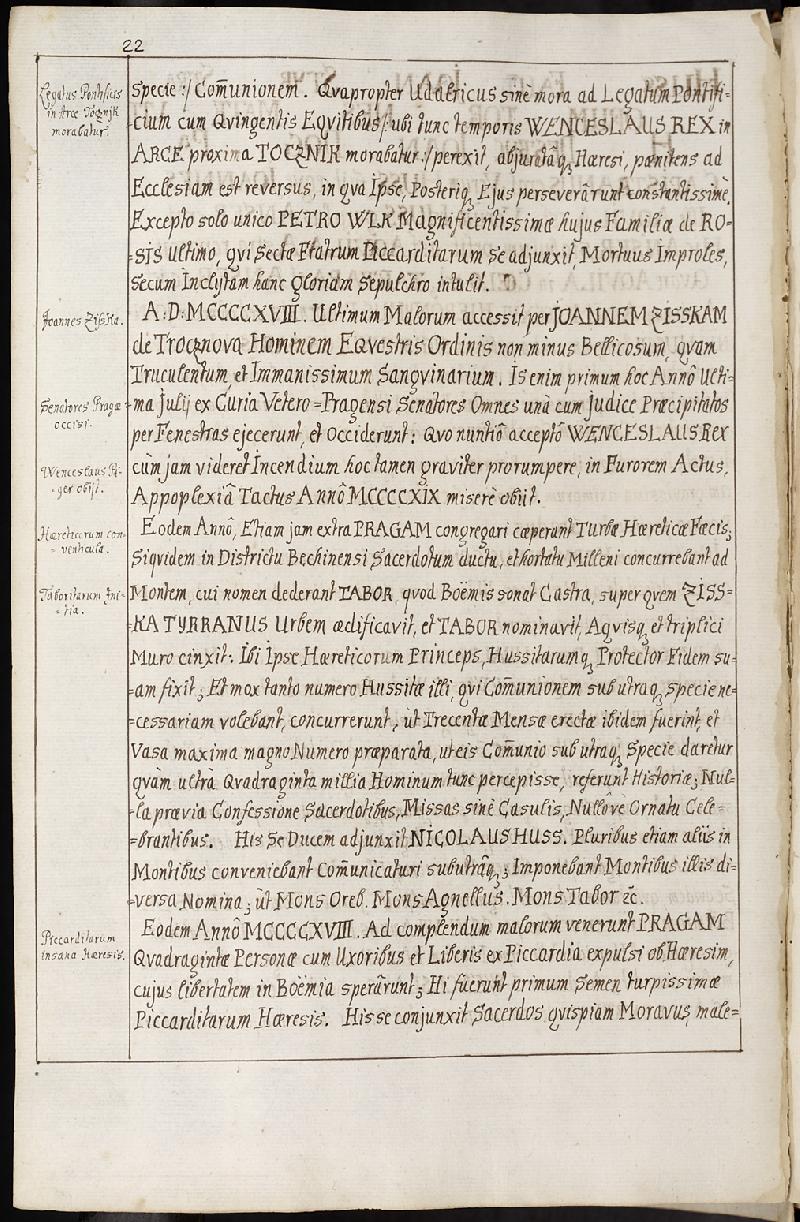 22
Legatus Pontificius
in Arce Tocznjk
morabatur.
Specie :/ Com̃unionem. Qvapropter Udalricus sinè mora ad Legatum Pontifi-
cium cum Qvingentis Eqvitibus /: ubi tunc temporis WENCESLAUS REX in
ARCE proxima TOCZNIK morabatur :/ perexit, abjuratâq, Hæresi, pænitens ad
Ecclesiam est reversus, in qva Ipse, Posteriq, Ejus perseverârunt constantissimè.
Excepto solo unico PETRO WLK Magnificentissimæ hujus Familiæ de RO-
-SIS ultimo, qvi Sectæ Ftatrum Piccarditarum se adjunxit, Mortuus Improles,
secum Inclytam hanc gloriam Sepulchro intulit.
Joannes Zisska.
A: D: MCCCCXVIII. Ultimum Malorum accessit per JOANNEM ZISSKAM
de Trocznova Hominem Eqvestris Ordinis non minus Bellicosum, qvam
Truculentum, et Immanissimum Sangvinarium. Is enim primum hoc Annô Ulti-
Senatores Pragæ
occisi.
-ma Julij ex Curia Vetero=Pragensi Senatores Omnes unà cum Judice Præcipitatos
per Fenestras ejecerunt, et Occiderunt: Qvo nuntiô acceptô WENCESLAUS REX
Wenceslaus Pi-
-ger obijt.
cùm jam videret Incendium hoc tamen graviter prorumpere, in Furorem Actus,
Appoplexiâ Tactus Annô MCCCCXIX miserè obiit.
Hæreticorum con-
venticula.
Eodem Annô, Etiam jam extra PRAGAM congregari cæperant Turbæ Hæreticæ Fæcis;
Siqvidem in Districtu Bechinensi Sacerdotum ductu, et hortatu Milleni concurrebant ad
Taboritarum Ini-
-tia.
Montem, cui nomen dederant TABOR, qvod Boëmis sonat Castra, super qvem ZISS-
-KA TYRRANUS Urbem ædificavit, et TABOR nominavit, Aqvisq, et triplici
Muro cinxit: Ibi Ipse Hæreticorum Princeps, Hussitarumq, Protector Sidem su-
-am fixit; Et mox tanto numero Hussitæ illi, qvi Com̃unionem sub utraq, specie ne-
-cessariam volebant, concurrerunt, ut Trecentæ Mensæ erectæ ibidem fuerint, et
Vasa maxima magno Numero præparata, ut eis Com̃unio sub utraq, Specie daretur
qvàm ultrà Qvadraginta millia Hominum tunc percepisse, referunt Historiæ; Nul-
-la prævia Confessione Sacerdotibus, Missas sinè Casulis, Nullôve Ornatu Cele-
=brantibus. His se Ducem adjunxit NICOLAUS HUSS. Pluribus etiam aliis in
Montibus conveniebant Com̃unicaturi sub utrâq,; Imponebant Montibus illis di-
-versa Nomina; ùt Mons Oreb. Mons Agnellus. Mons Tabor &c.
Piccarditarum
insana Hæresis.
Eodem Annô MCCCCXVIII. Ad complendum malorum venerunt PRAGAM
Qvadragintæ Personæ cum Uxoribus et Liberis ex Piccardia expulsi ob Hæresim,
cujus libertatem in Boëmia sperârunt; Hi fuerunt primum Semen turpissimæ
Piccarditarum Hæresis. His se conjunxit Sacerdos qvispiam Moravus male=